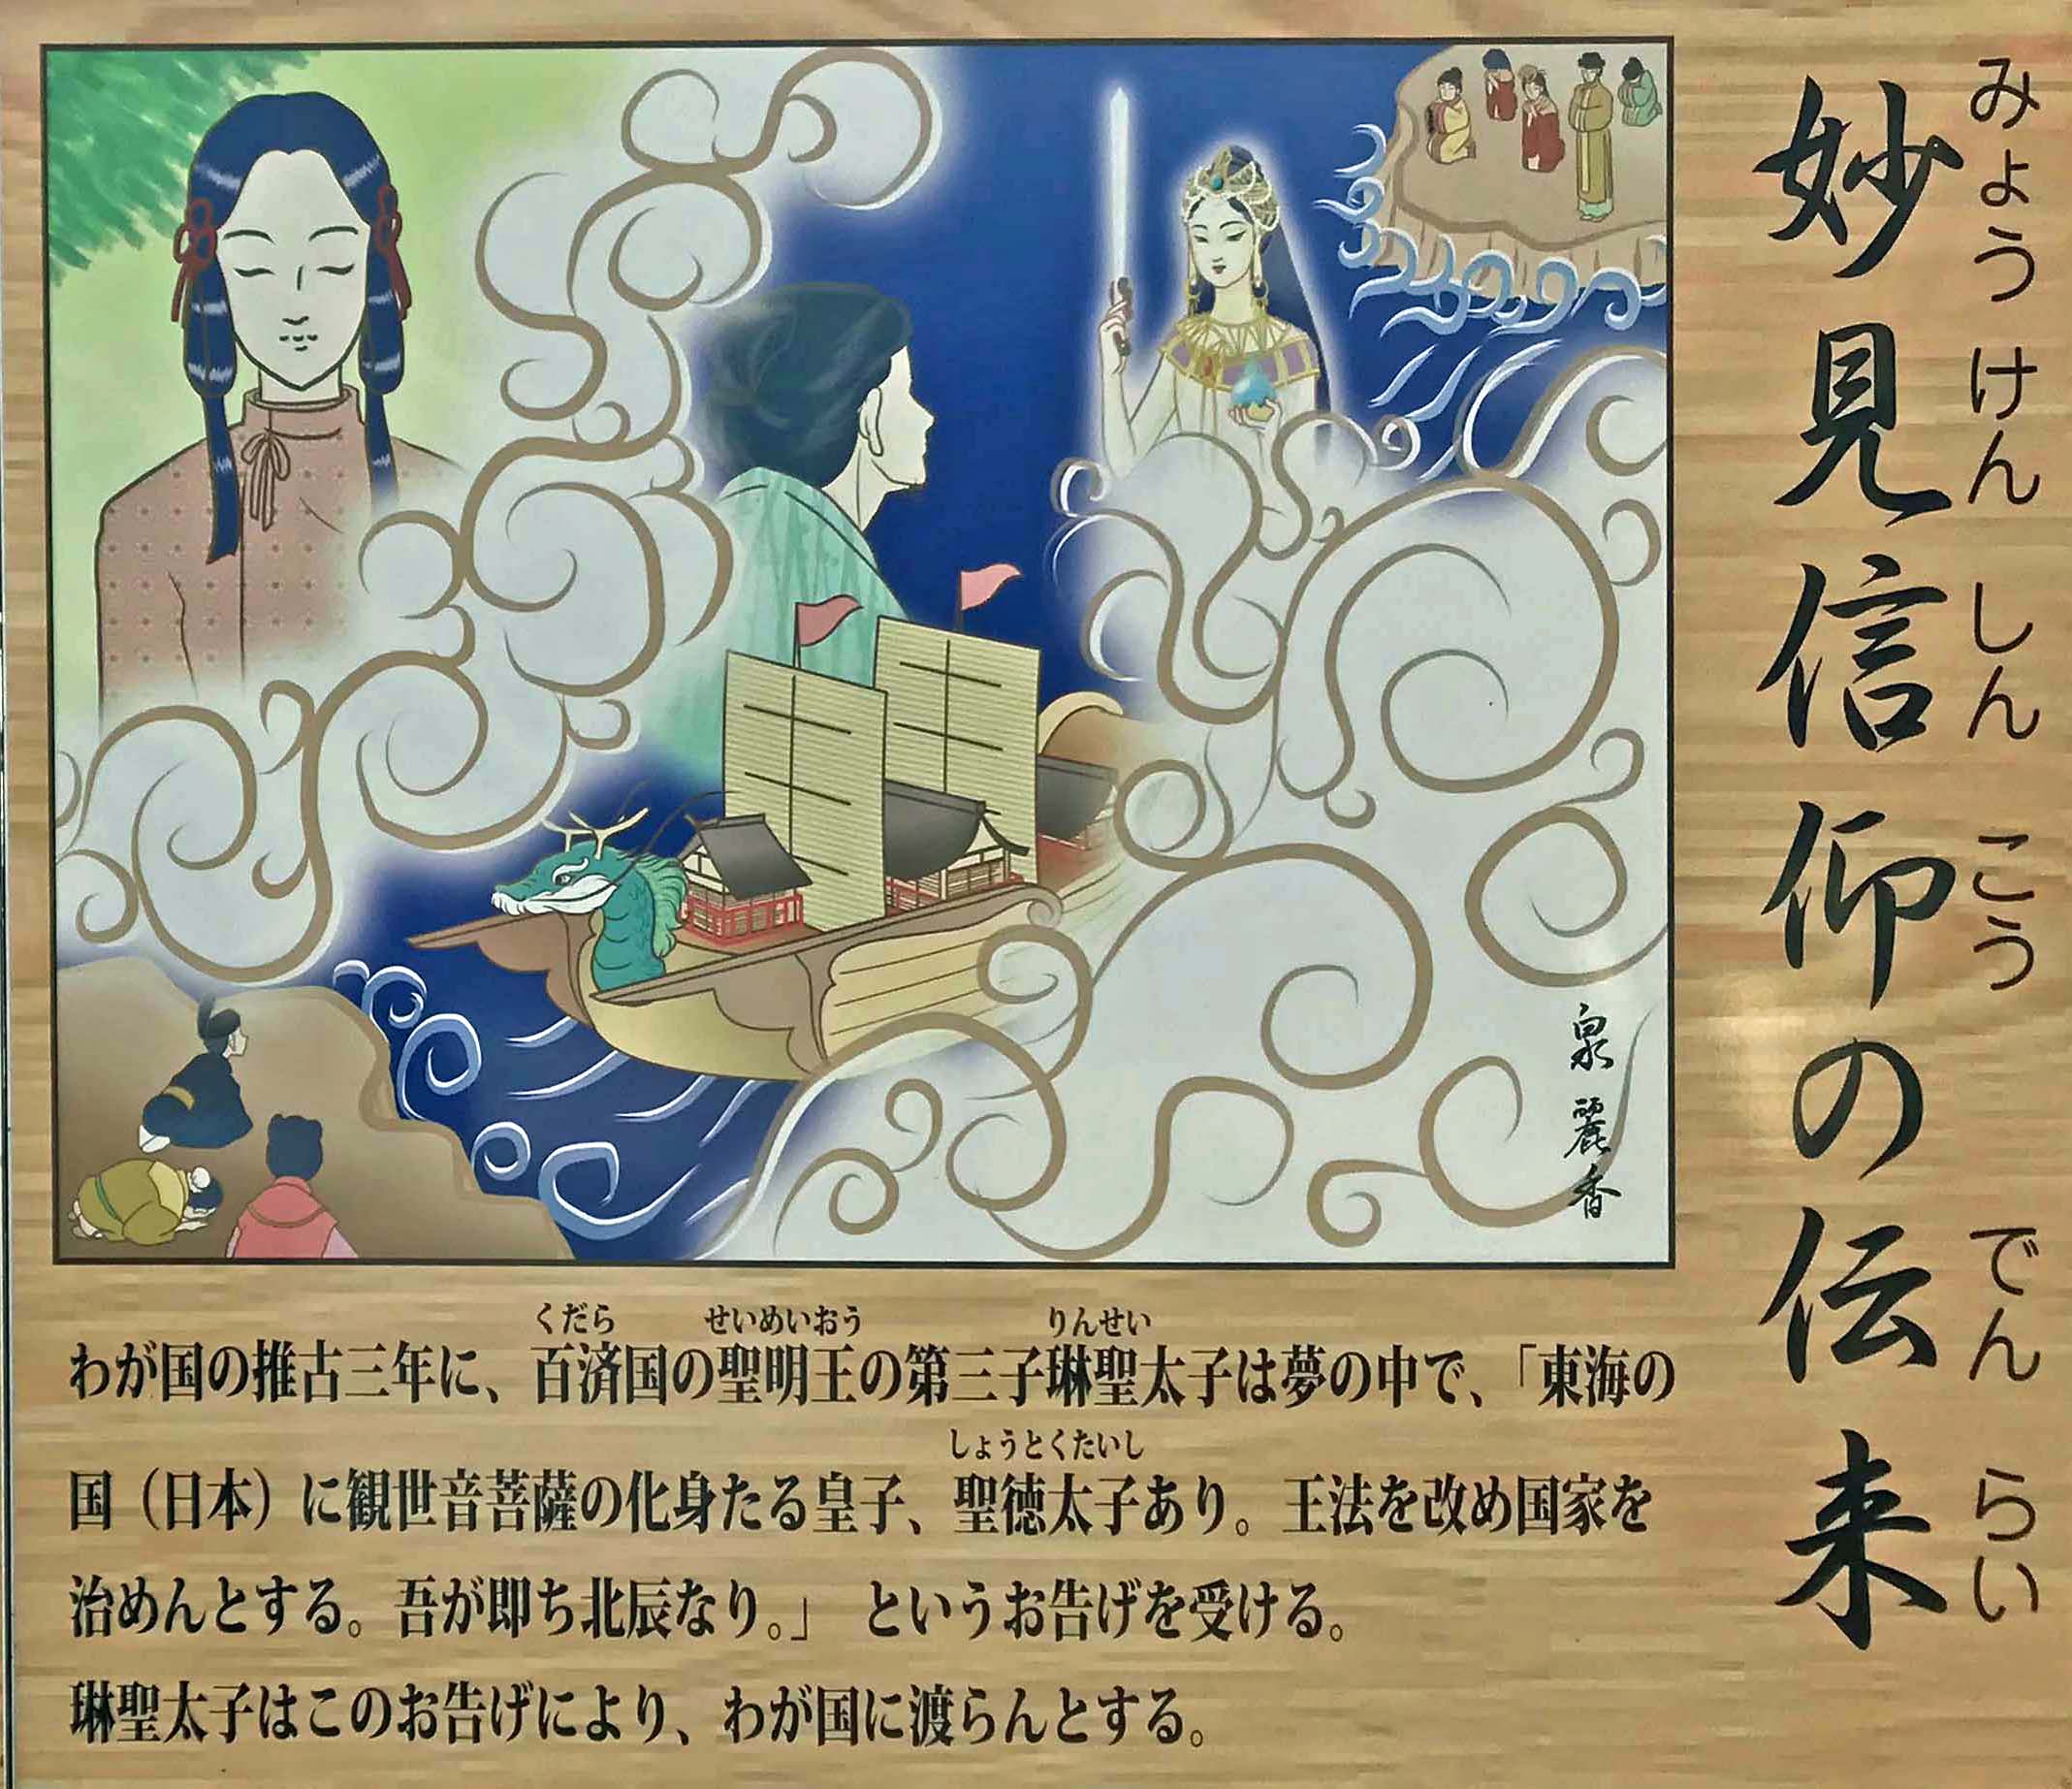 妙見信仰の伝来
みょうけんしんこうでんらい
泉麗香
くだら せいめいおう りんせい
わが国の推古三年に、百済国の聖明王の第三子琳聖太子は夢の中で、「東海の
しょうとくたいし
国（日本）に観世音菩薩の化身たる皇子、聖徳太子あり。王法を改め国家を
治めんとする。吾が即ち北辰なり。」 というお告げを受ける。
琳聖太子はこのお告げにより、わが国に渡らんとする。